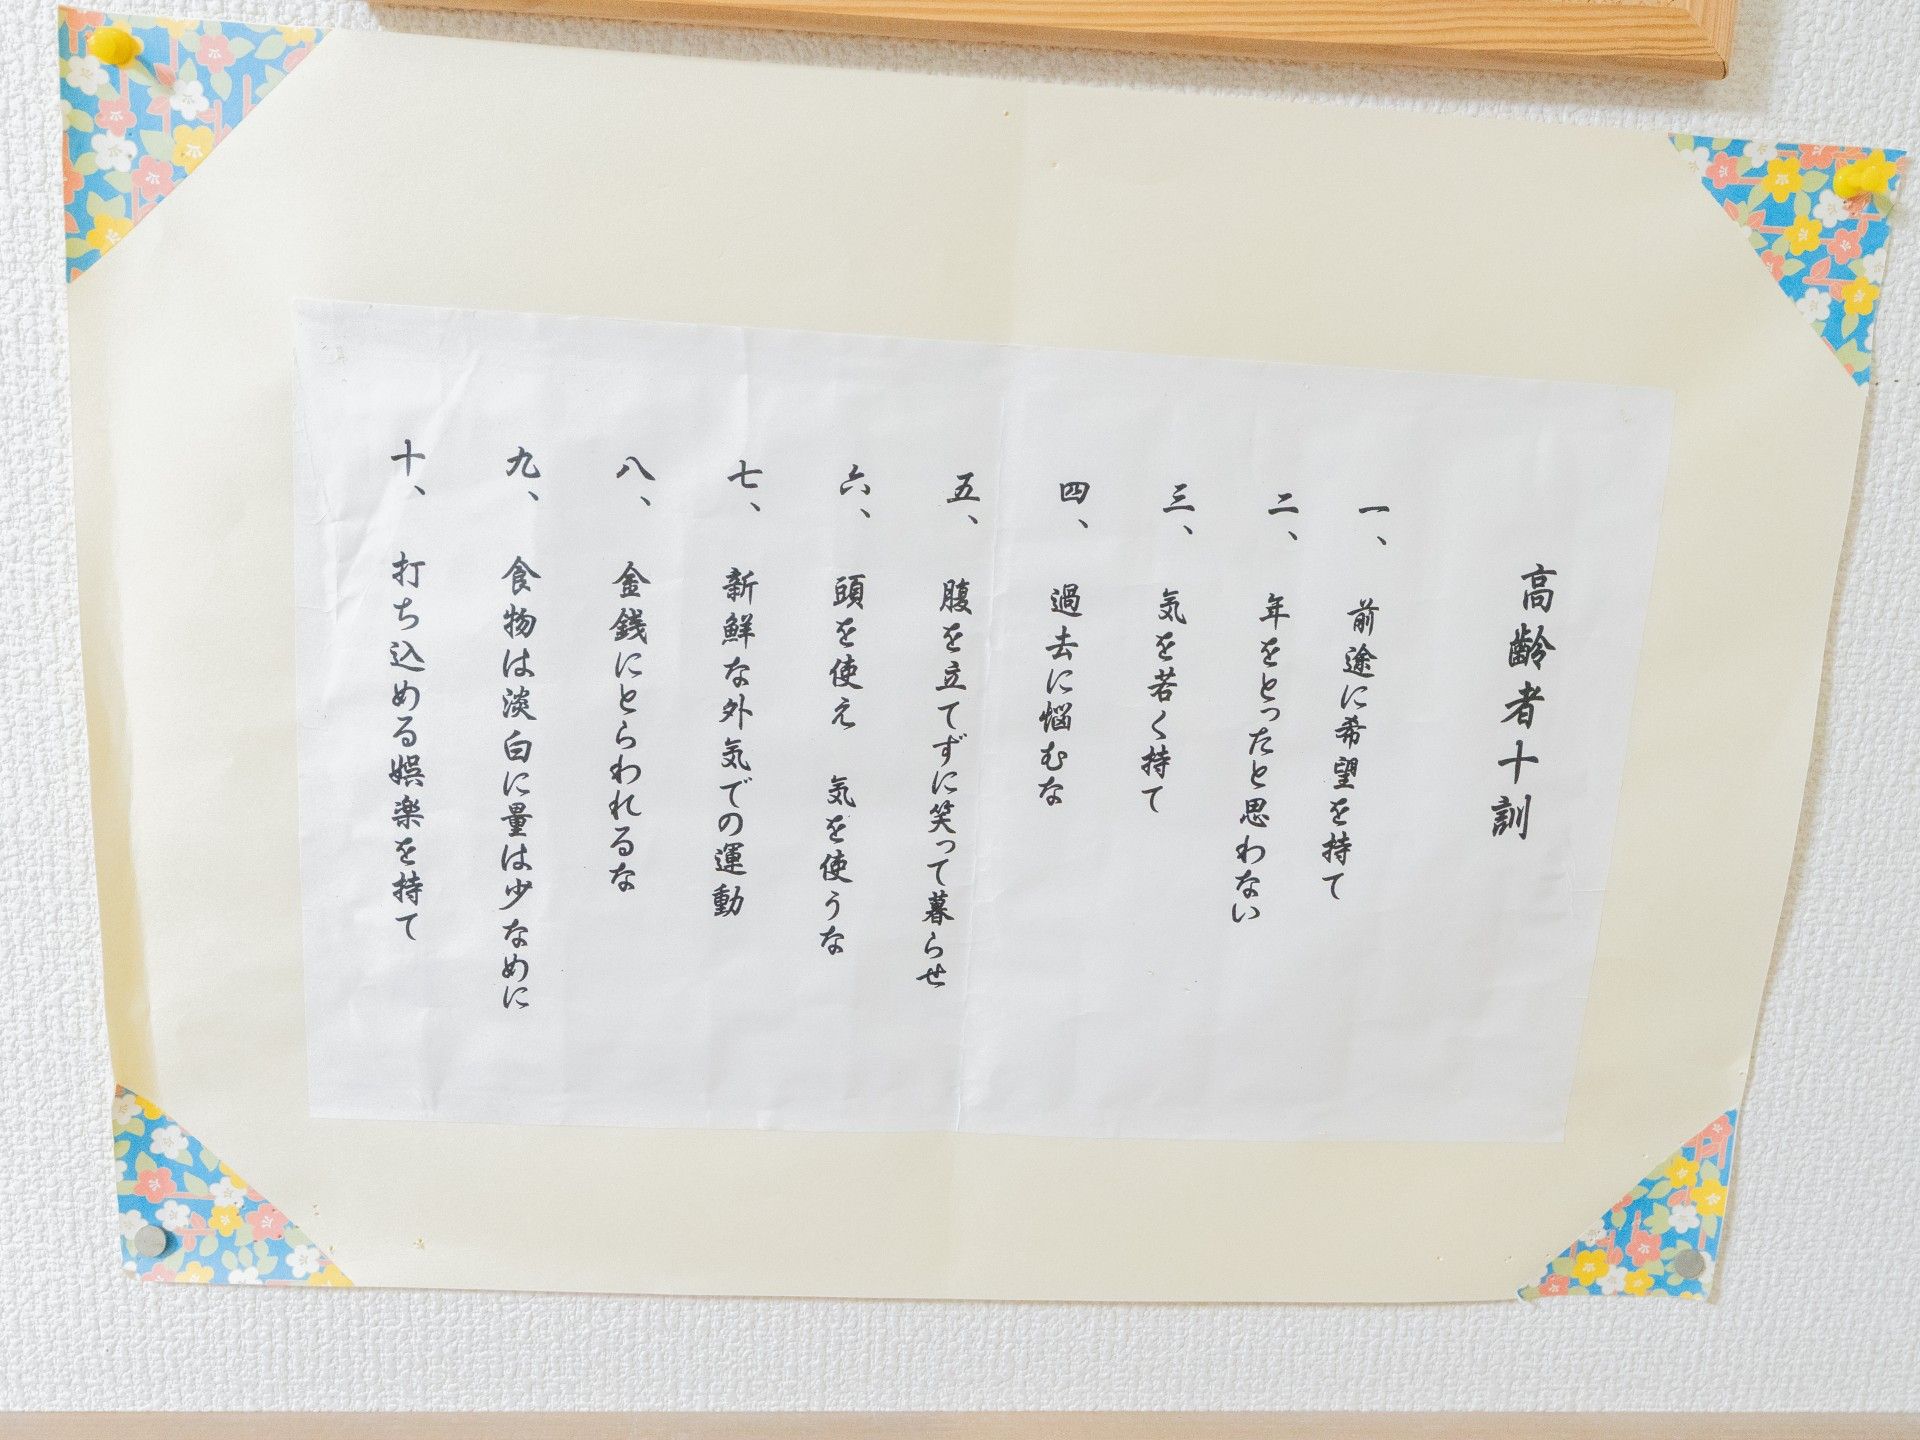 高齢者十訓
一、 前途に希望を持て
二、 年をとったと思わない
三、 気を若く持て
四、 過去に悩むな
五、 腹を立てずに笑って暮らせ
六、 頭を使え 気を使うな
七、 新鮮な外気での運動
八、 金銭にとらわれるな
九、 食物は淡白に量は少なめに
十、 打ち込める娯楽を持て